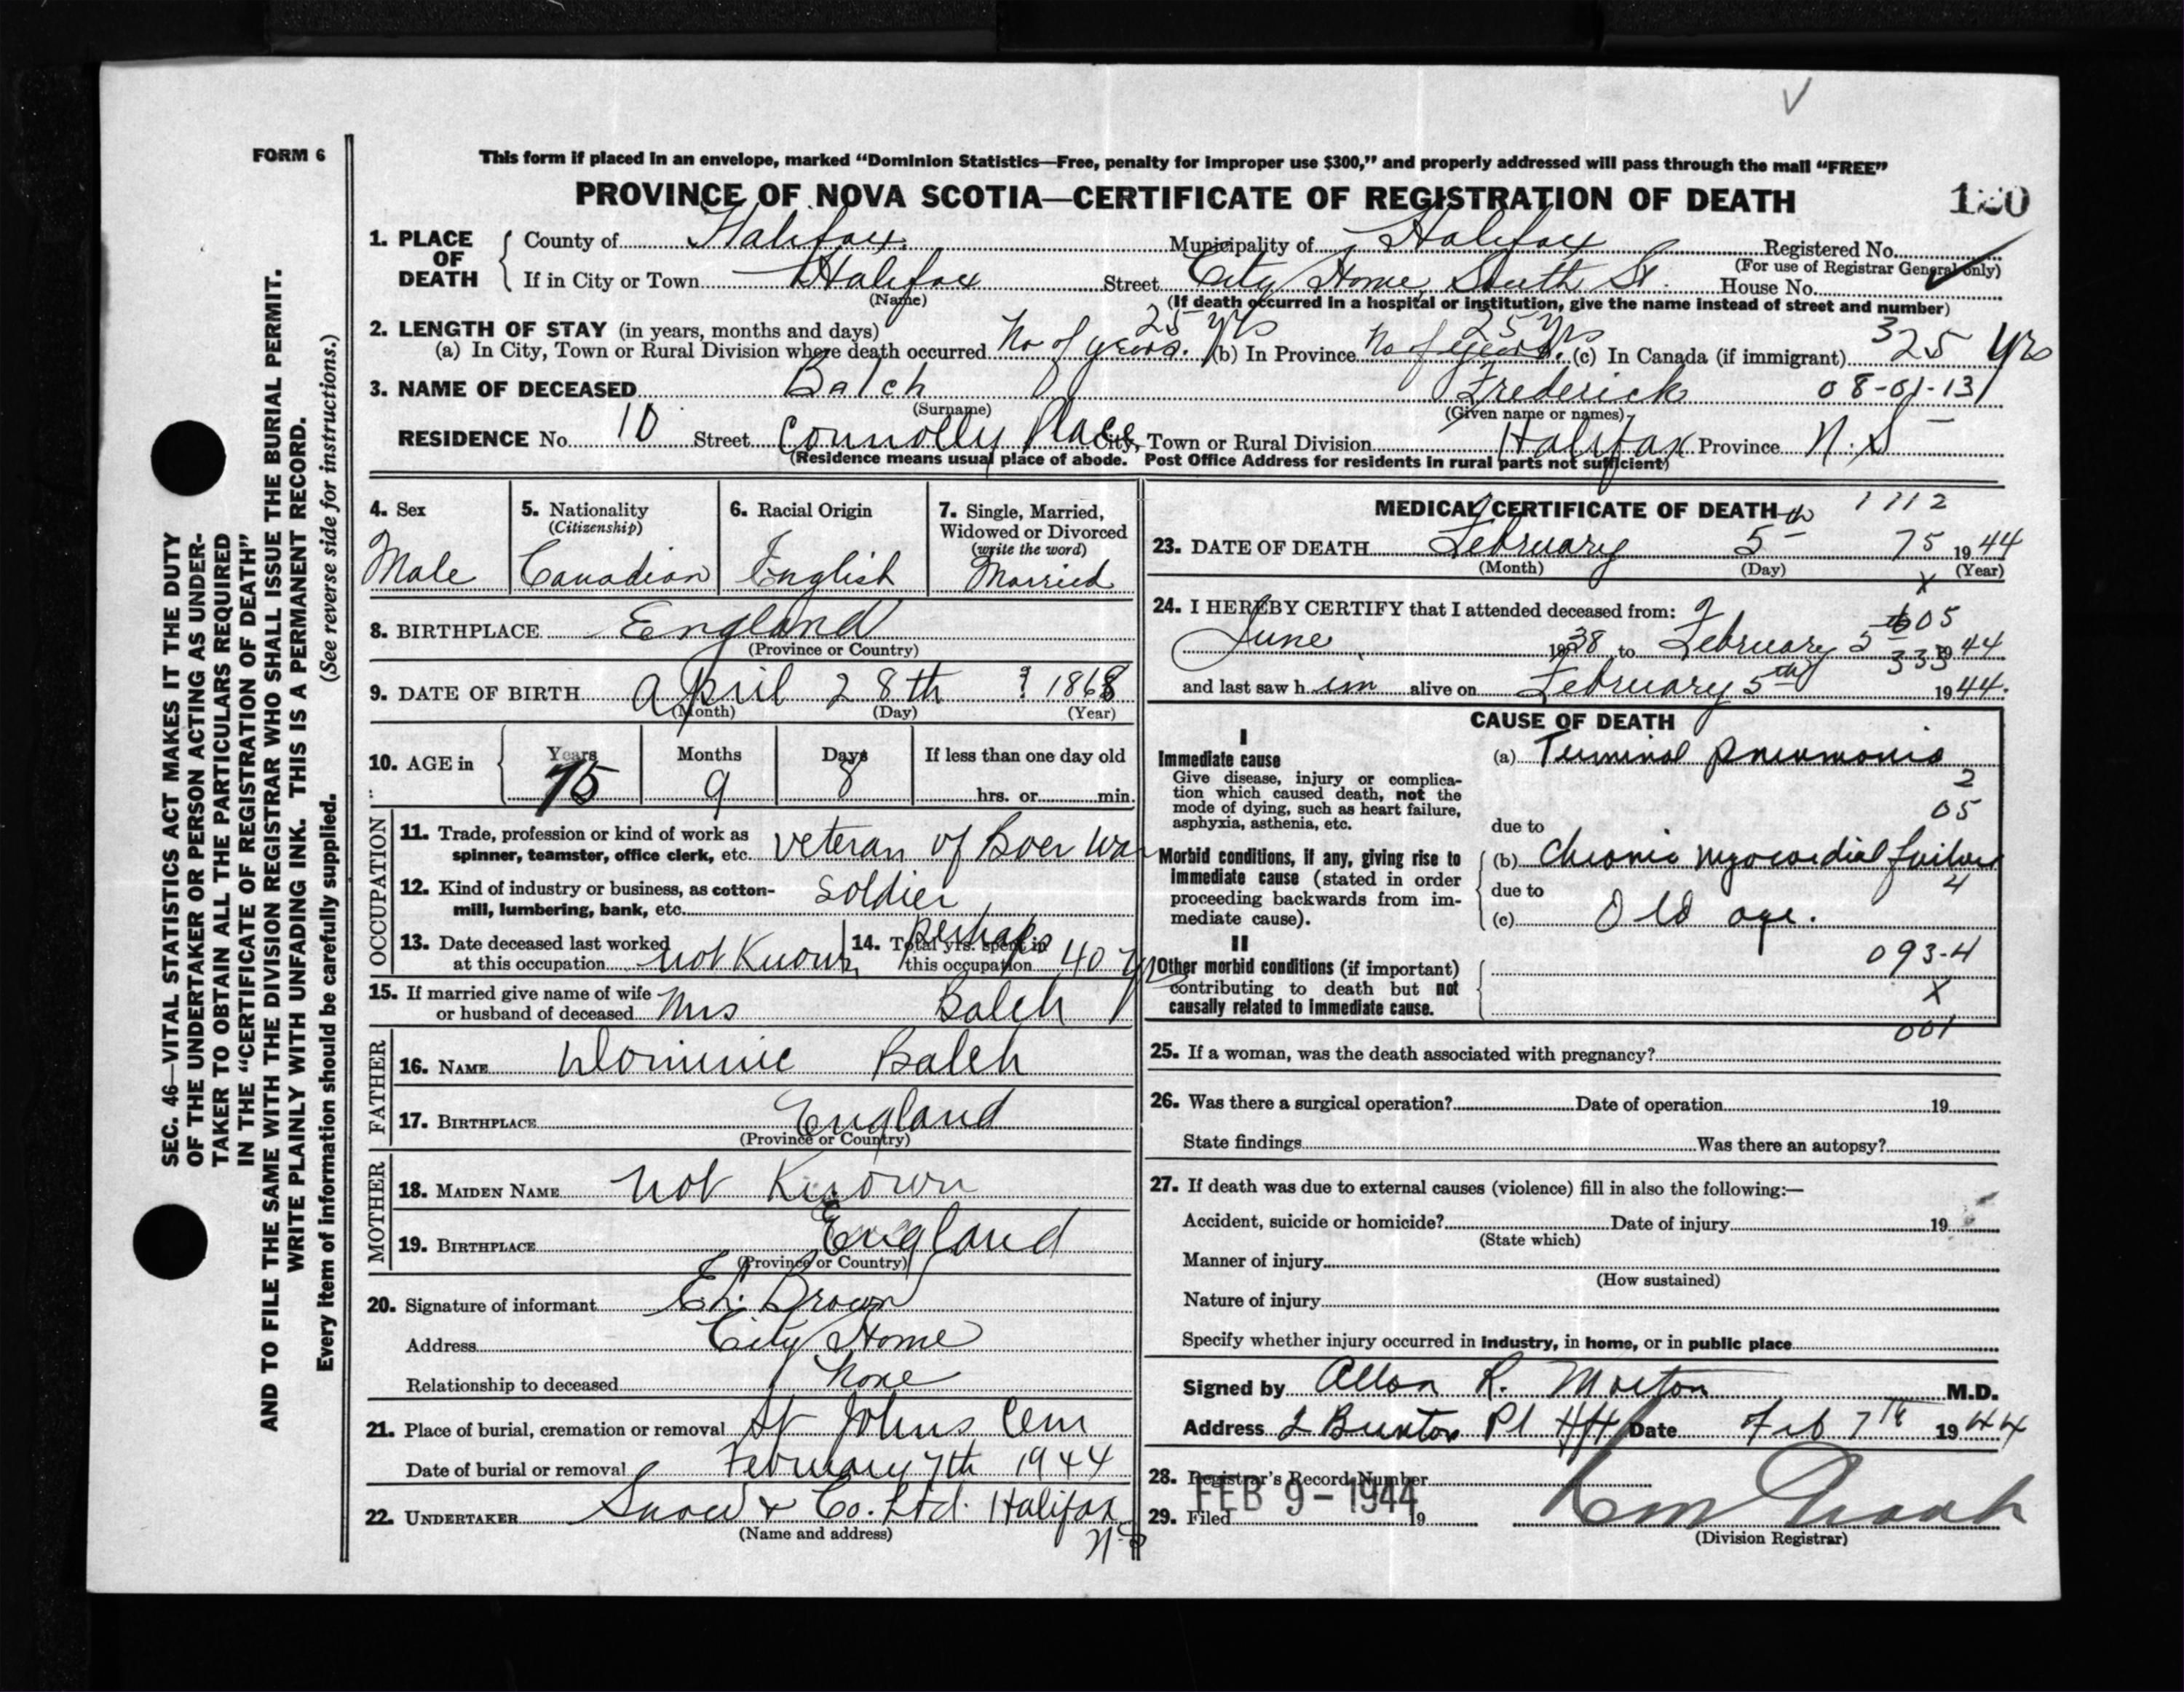 V
FORM 6
This form if placed in an envelope, marked “Dominion Statistics—Free, penalty for improper use $300,” and properly addressed will pass through the mail “FREE”
PROVINCE OF NOVA SCOTIA—CERTIFICATE OF REGISTRATION OF DEATH
1. PLACE OF DEATH
County of Halifax Municipality of Halifax Registered No.
(For use of Registrar General only)
If in City or Town Halifax Street City Home, South St. House No.
(Name) (If death occurred in a hospital or institution, give the name instead of street and number)
2. LENGTH OF STAY (in years, months and days) 25 yrs 25 yrs 3
(a) In City, Town or Rural Division where death occurred No of years. (b) In Province No of years. (c) In Canada (if immigrant) 25 Yrs
3. NAME OF DECEASED Balch Frederick 08-01-13
(Surname) (Given name or names)
RESIDENCE No. 10 Street Connolly Place City, Town or Rural Division Halifax Province N.S
(Residence means usual place of abode. Post Office Address for residents in rural parts not sufficient)
4. Sex 5. Nationality (Citizenship) 6. Racial Origin 7. Single, Married, Widowed or Divorced (write the word)
Male Canadian English Married
8. BIRTHPLACE England
(Province or Country)
9. DATE OF BIRTH April 28th ? 1868
(Month) (Day) (Year)
10. AGE in Years Months Days If less than one day old
75 9 8 hrs. or min.
OCCUPATION
11. Trade, profession or kind of work as
spinner, teamster, office clerk, etc. veteran of Boer War
12. Kind of industry or business, as cotton-
mill, lumbering, bank, etc. soldier
13. Date deceased last worked
at this occupation not Known
14. Total yrs. spent in
this occupation perhaps 40 yrs
15. If married give name of wife
or husband of deceased Mrs Balch
FATHER
16. NAME Dominic Balch
17. BIRTHPLACE England
(Province or Country)
MOTHER
18. MAIDEN NAME not Known
19. BIRTHPLACE England
(Province or Country)
20. Signature of informant Brown
Address City Home
Relationship to deceased None
21. Place of burial, cremation or removal St Johns Cem
Date of burial or removal February 7th 1944
22. UNDERTAKER Snow & Co. Ltd. Halifax N.S
(Name and address)
MEDICAL CERTIFICATE OF DEATH 1112
23. DATE OF DEATH February 5th 75 1944
(Month) (Day) (Year)
x
24. I HEREBY CERTIFY that I attended deceased from: 2 605
June 1938 to February 5th 1944
333
and last saw h im alive on February 5th 1944.
CAUSE OF DEATH
I
Immediate cause
Give disease, injury or complica-
tion which caused death, not the
mode of dying, such as heart failure,
asphyxia, asthenia, etc.
(a) Terminal pneumonia
2
05
due to
Morbid conditions, if any, giving rise to
immediate cause (stated in order
proceeding backwards from im-
mediate cause).
(b) Chronic myocardial failure
4
due to
(c) Old age.
II
Other morbid conditions (if important)
contributing to death but not
causally related to immediate cause.
093-4
X
001
25. If a woman, was the death associated with pregnancy?
26. Was there a surgical operation? Date of operation 19
State findings Was there an autopsy?
27. If death was due to external causes (violence) fill in also the following:—
Accident, suicide or homicide? Date of injury 19
(State which)
Manner of injury
(How sustained)
Nature of injury
Specify whether injury occurred in industry, in home, or in public place
Signed by Allan R. Morton M.D.
Address 2 Buxton Pl Hfx Date Feb 7th 1944
28. Registrar's Record Number
FEB 9 - 1944
29. Filed 19
(Division Registrar)
SEC. 46—VITAL STATISTICS ACT MAKES IT THE DUTY
OF THE UNDERTAKER OR PERSON ACTING AS UNDER-
TAKER TO OBTAIN ALL THE PARTICULARS REQUIRED
IN THE “CERTIFICATE OF REGISTRATION OF DEATH”
AND TO FILE THE SAME WITH THE DIVISION REGISTRAR WHO SHALL ISSUE THE BURIAL PERMIT.
WRITE PLAINLY WITH UNFADING INK. THIS IS A PERMANENT RECORD.
Every item of information should be carefully supplied. (See reverse side for instructions.)